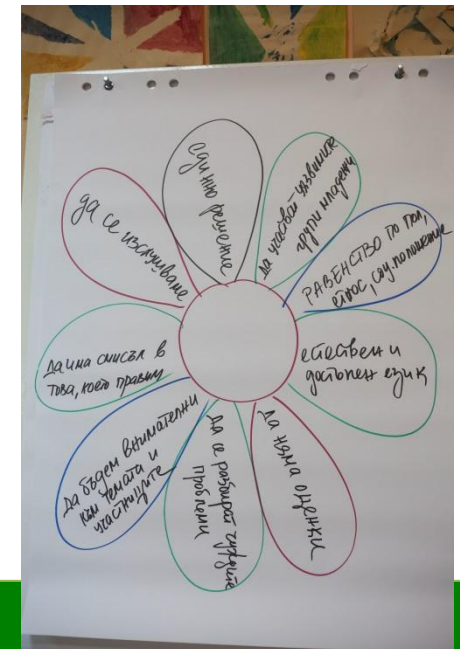 единно решение
да участват уязвимите
групи младежи
РАВЕНСТВО ПО ПОЛ,
етнос, соц. положение
естествен и
достъпен език
да няма оценки
да се разбират чуждите
проблеми
да бъдем внимателни
към темата и
участниците
да има смисъл в
това, което правим
да се изслушваме